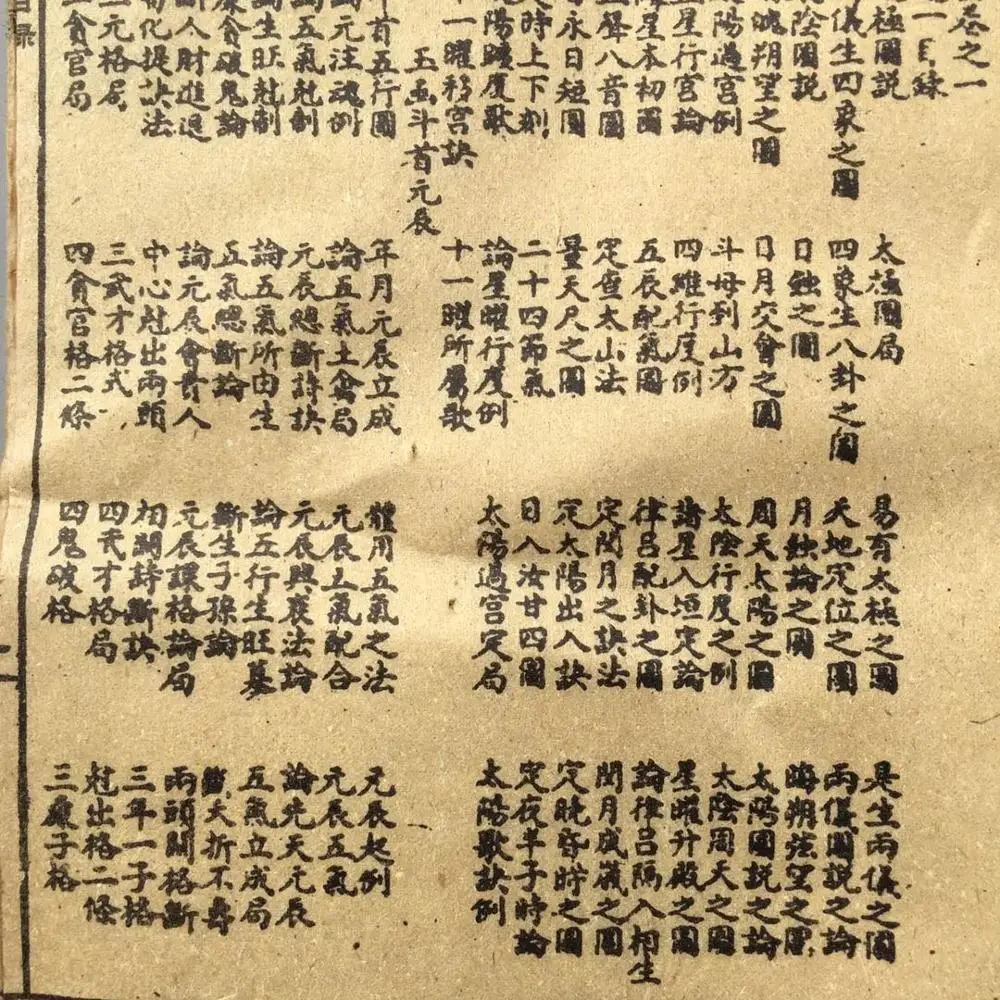 卷之一
目錄
極圖說 太極圖局 易有太極之圖 是生兩儀之圖
儀生四象之圖 四象生八卦之圖 天地定位之圖 兩儀圖説之論
陰圖説 日蝕之圖 月蝕論之圖 晦朔弦望之圖
魄朔望之圖 日月交會之圖 周天太陽之圖 太陽圖説之論
陽過宮例 斗母到山方 太陰行度之例 太陰周天之圖
星行宮論 四維行度例 諸星入垣定論 星曜升殿之圖
星本初圖 五辰配氣圖 律吕配卦之圖 論律吕隔八相生
聲八音圖 定查太山法 定閏月之訣法 閏月成歲之圖
永日短圖 量天尺之圖 定太陽出入訣 定晚昏時之圖
時上下刻 二十四節氣 日入汝廿四圖 定夜半子時論
陽躔度歌 論星曜行度例 太陽過宮定局 太陽歌訣例
十一曜移宮訣 十一曜所屬歌
玉函斗首元辰
年首五行圖 年月元辰立成 體用五氣之法 元辰起例
元注魂例 論五氣土禽局 元辰五氣配合 元辰五氣
五氣尅制 元辰總斷詩訣 元辰與衰法論 論先天元辰
生旺尅制 論五氣所由生 論五行生旺墓 五氣立成局
貪破鬼論 五氣總斷論 斷生子孫論 夭折不壽
人財進退 論元辰會貴人 元辰課格論局 兩頭關格斷
化提訣法 中心尅出兩頭 相關詩斷訣 三年一子格
元格局 三武才格式 四武才格局 尅出格二條
貪官局 四貪官格二條 四鬼破格 三廉子格